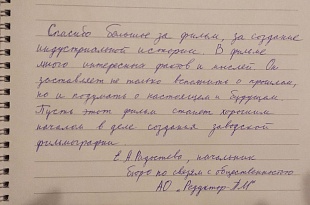 Спасибо большое за фильм, за создание
индустриальной истории. В фильме
много интересных фактов и мыслей. Он
заставляет не только вспомнить о прошлом,
но и создумать о настоящем и будущем.
Пусть этот фильм станет хорошим
началом в деле создания заводской
фильмографии
Е.А. начальник
бюро по связям с общественностью
АО „Редуктор-ПМ"